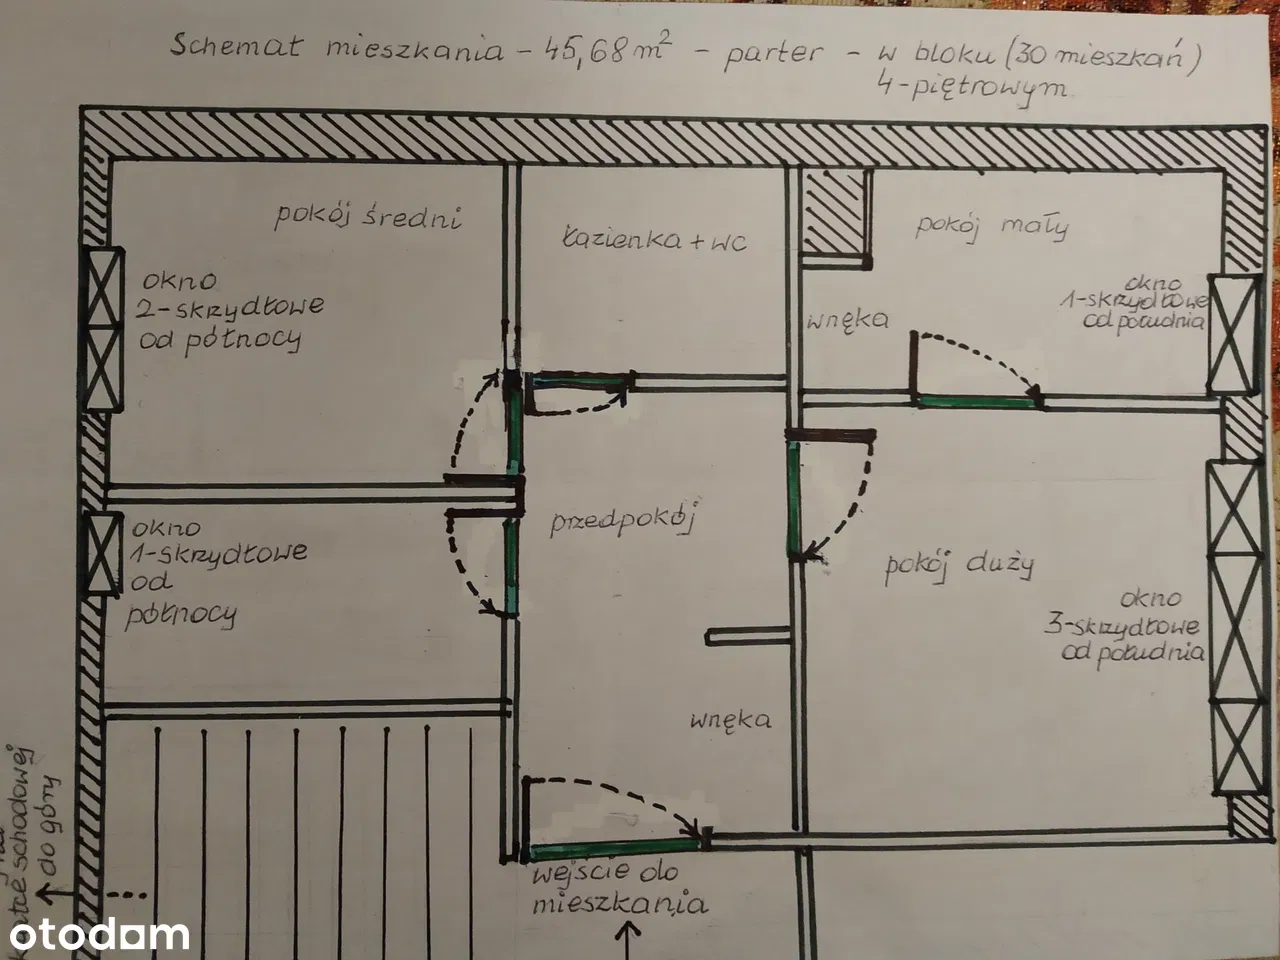 Schemat mieszkania - 45,68 m² - parter - w bloku (30 mieszkań)
4-piętrowym
pokój średni
łazienka + wc
pokój mały
okno
2-skrzydłowe
od północy
okno
1-skrzydłowe
od południa
wnęka
okno
1-skrzydłowe
od
północy
przedpokój
pokój duży
okno
3-skrzydłowe
od południa
wnęka
wejście do
mieszkania
schodowej
do góry
otodom